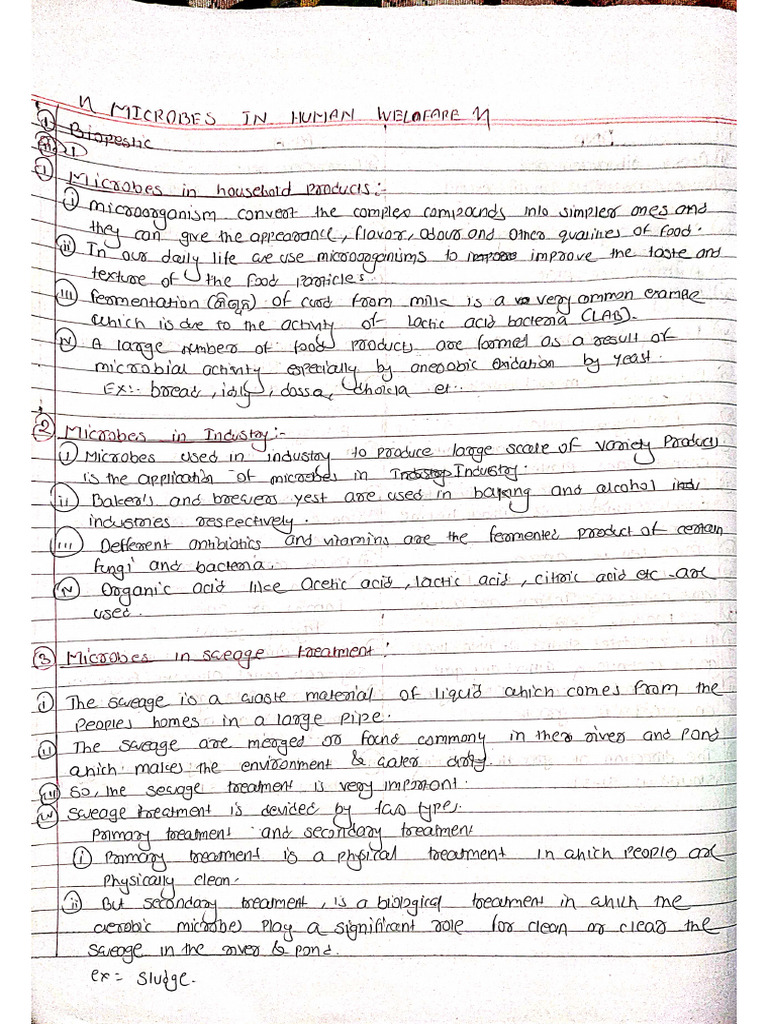 MICROBES IN HUMAN WELOFARE
① Biopestic
① Microbes in household products:-
ⓘ microorganism convert the complex compounds into simpler ones and
they can give the appearance, flavor, odour and other qualities of food.
ⓘⓘ In our daily life we use microorganiums to improve the taste and
texture of the food particles.
ⓘⓘⓘ fermentation of curd from milk is a very common example
which is due to the activity of Lactic acid bacteria (LAB).
iv A large number of food products are formed as a result of
microbial activity especially by aneorobic oxidation by yeast.
EX:- bread, idly, dossa, dhokla et..
② Microbes in Industry:-
i Microbes used in industry to produce large scale of variety products
is the application of microbes in Industry.
ii Baker's and brewers yest are used in baking and alcohol ind
industries respectively.
iii Defferent antibiotics and vitamins are the fermented product of certain
fungi and bacteria.
iv Organic acid like acetic acid, lactic acid, citric acid etc - are
used.
③ Microbes in sweage treatment:
i The sweage is a waste material of liquid which comes from the
peoples homes in a large pipe.
ii The sweage are merged or found commony in there river and pond
which makes the environment & water dirty.
iii so, the sewage treatment is very important.
iv sweage treatment is devided by two types.
primary treatment and secondary treatment
i primary treatment is a physical treatment in which people are
physically clean.
ii But secondary treatment, is a biological treatment in which the
aerobic microbes play a significant role for clean or clear the
sweage in the river & pond.
ex = sludge.